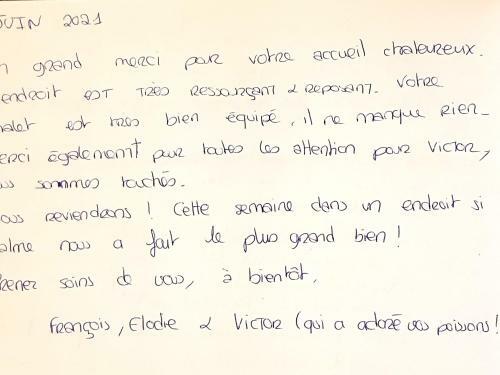 JUIN 2021
n grand merci pour votre accueil chaleureux.
endroit est très ressourçant & reposant. Votre
halet est très bien équipé, il ne manque rien-
erci également pour toutes les attention pour Victor,
us sommes touchés.
ous reviendrons ! Cette semaine dans un endroit si
alme nous a fait le plus grand bien !
renez soins de vous, à bientôt,
François, Elodie & Victor (qui a adoré vos poissons !